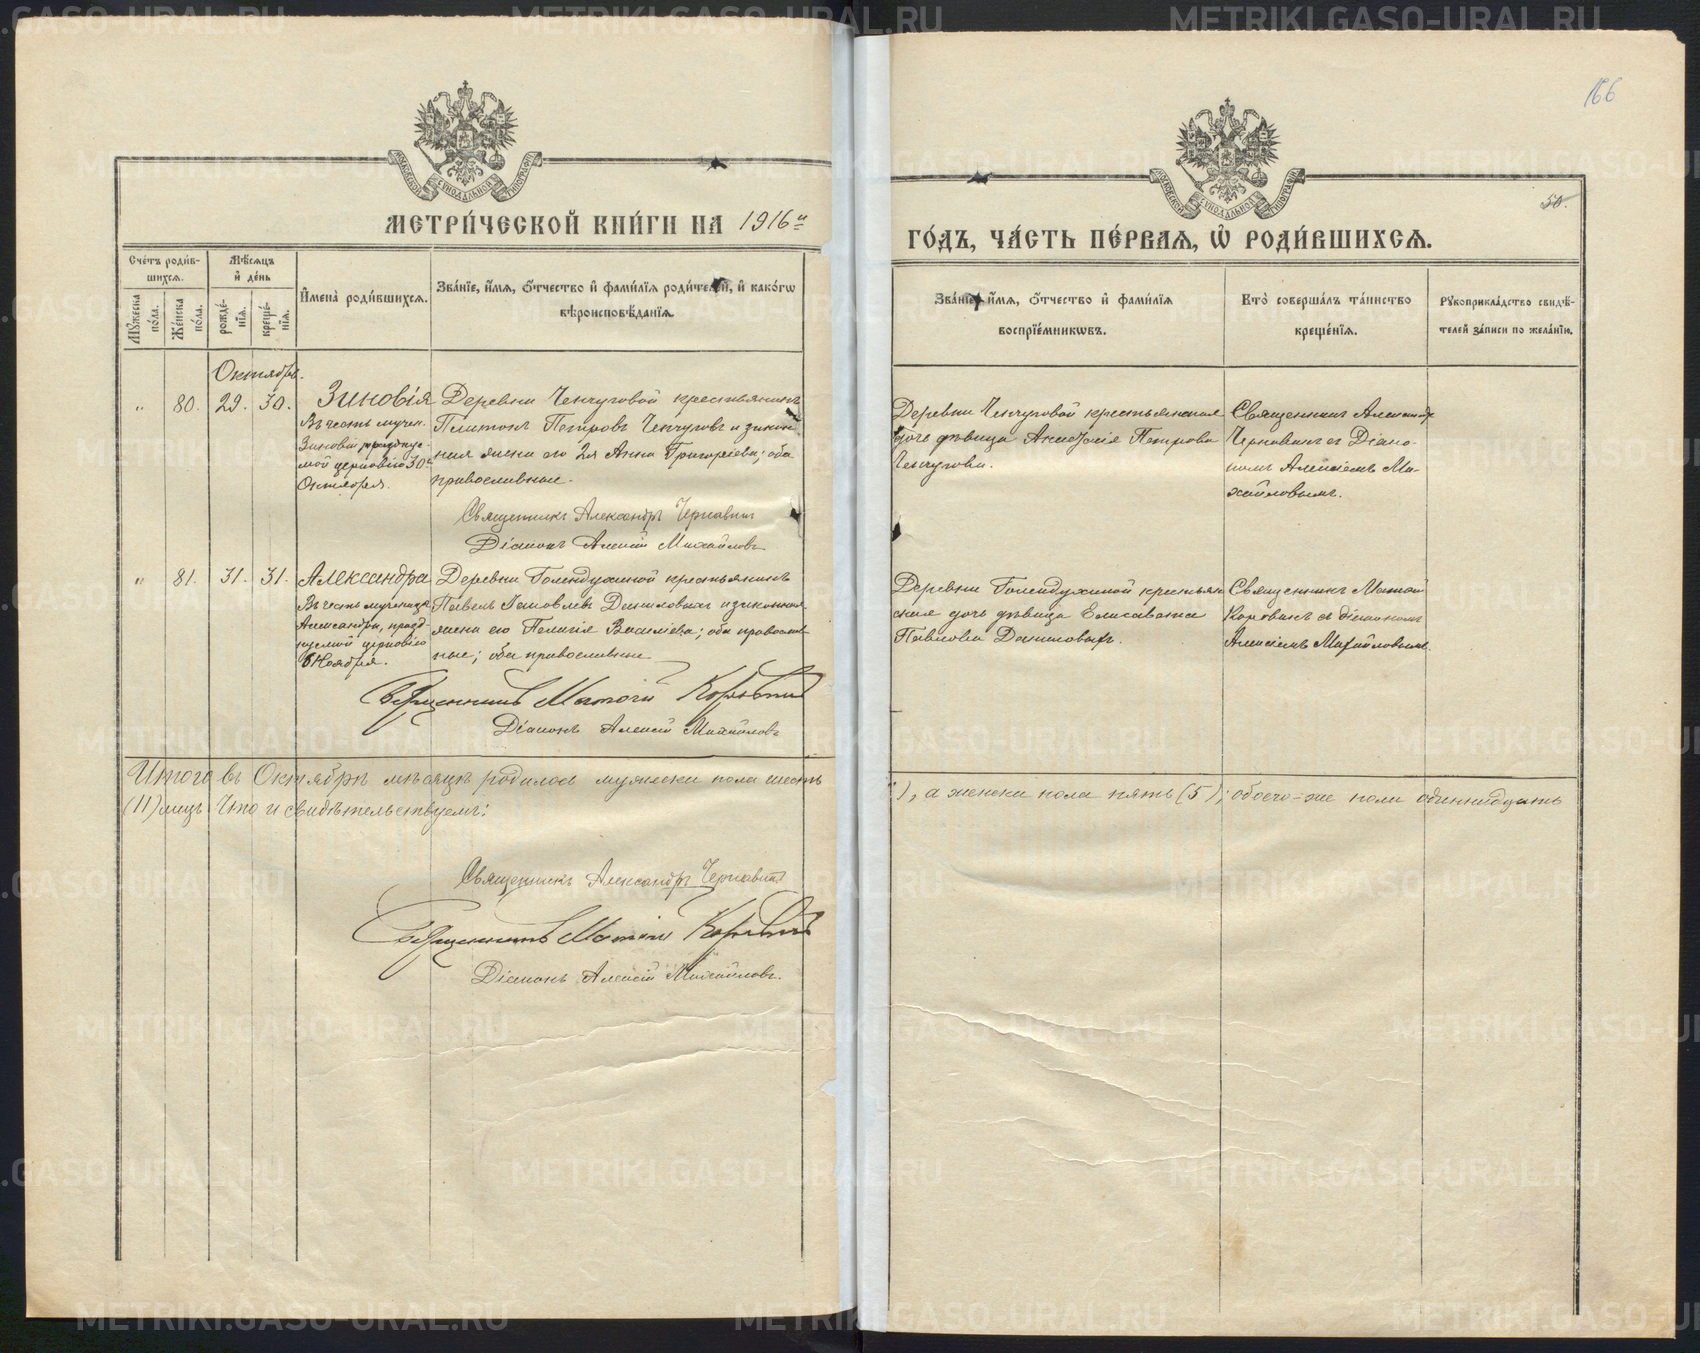 166
50.
МЕТРИ́ЧЕСКОЙ КНИ́ГИ НА 1916й
ГО́ДЪ, ЧА́СТЬ ПЕ́РВАЯ, Ѡ҆ РОДИ́ВШИХСЯ.
Сче́тъ роди́в-
шихся.
Мѣ́сяцъ
и҆ де́нь
Мꙋ́жеска по́ла.
Же́нска по́ла.
рожде́-
нїя.
креще́-
нїя.
И҆мена̀ роди́вшихся.
Зва́нїе, и҆́мя, ѻ҆́тчество и҆ фами́лїя роди́телей, и҆ како́гѡ
вѣроисповѣ́данїя.
Зва́нїе, и҆́мя, ѻ҆́тчество и҆ фами́лїя
воспрїе́мникѡвъ.
Кто̀ соверша́лъ та́инство
креще́нїя.
Рꙋкоприкла́дство свидѣ́-
телей за́писи по жела́нїю.
Октябрь.
" 80. 29. 30. Зиновія
Въ честь мучен.
Зиновіи празднуе-
мой церковію 30го
Октября.
Деревни Ченчуговой крестьянинъ
Платонъ Петровъ Ченчуговъ и закон-
ная жена его 2я Анна Григорьева; оба
православные.
Священникъ Александръ Чернавинъ
Діаконъ Алексій Михайловъ
Деревни Ченчуговой крестьянская
дочь дѣвица Анастасія Петрова
Ченчугова.
Священникъ Александръ
Чернавинъ съ Діако-
номъ Алексіемъ Ми-
хайловымъ.
" 81. 31. 31. Александра
Въ честь мученицы
Александры, празд-
нуемой церковію
6 Ноября.
Деревни Голендухиной крестьянинъ
Павелъ Іаковлевъ Даниловыхъ и законная
жена его Пелагія Васильева; оба православ-
ные; оба православные
Священникъ Матѳій Коровинъ
Діаконъ Алексій Михайловъ
Деревни Голендухиной крестьян-
ская дочь дѣвица Елисавета
Павлова Даниловыхъ.
Священникъ Матѳій
Коровинъ съ діакономъ
Алексіемъ Михайловымъ.
Итого въ Октябрѣ мѣсяцѣ родилось мужеска пола шесть
), а женска пола пять (5); обоего-же пола одиннадцать
(11) лицъ Что и свидѣтельствуемъ:
Священникъ Александръ Чернавинъ
Священникъ Матѳій Коровинъ
Діаконъ Алексій Михайловъ.
METRIKI.GASO-URAL.RU